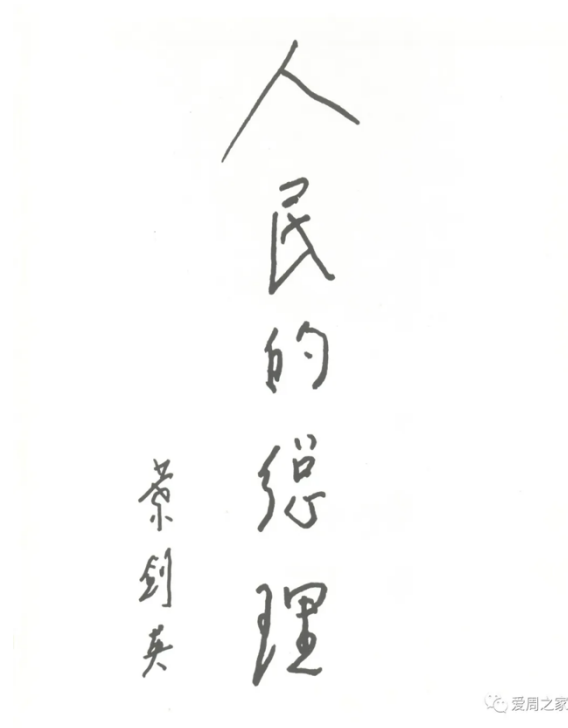 人民的總理
葉剑英
爱周之家